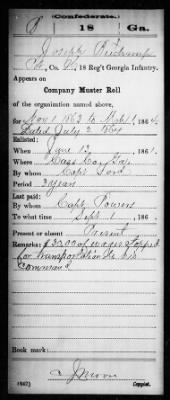 (Confederate.)
18 Ga.
Joseph
Co. 18 Reg't Georgia Infantry.
Appears on
Company Muster Roll
of the organization named above,
for Nov 1 1863 to 1864
dated July 2 1864
Enlisted:
When June 13, 1861.
Where
By whom Capt
Period 3 years
Last paid:
By whom Capt Powers
To what time Sept 1, 186
Present or absent Present
Remarks: of wages stopped
for transportation to his
command
Book mark:
J Moore
(642) Copyist.